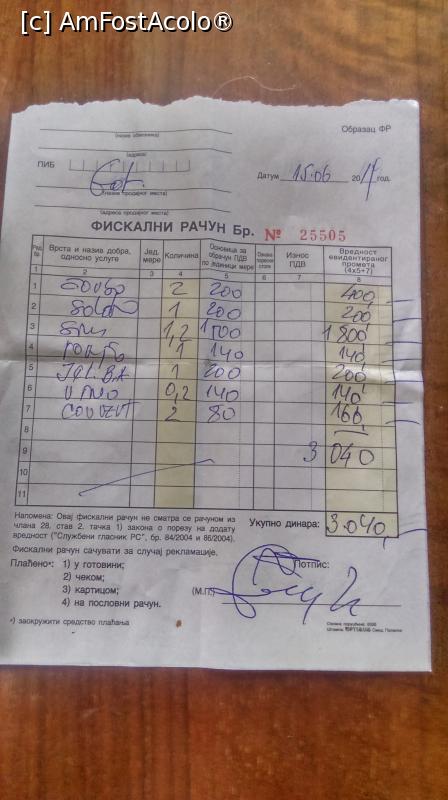 [c] AmFostAcolo®
(назив обвезника)
Образац ФР
(адреса)
ПИБ
Датум 15.06 2017 год.
(назив продајног места)
(адреса продајног места)
ФИСКАЛНИ РАЧУН Бр. № 25505
Ред. бр. Врста и назив добра, односно услуге Јед. мере Количина Основица за обрачун ПДВ по јединици мере Ознака пореске стопе Износ ПДВ Вредност евидентираног промета (4x5+7)
1 2 3 4 5 6 7 8
1 2 200 400
2 1 200 200
3 1,2 1500 1800
4 1 140 140
5 1 200 200
6 0,2 140 140
7 2 80 160
8
9 3 040
10
11
Напомена: Овај фискални рачун не сматра се рачуном из
члана 28, став 2. тачка 1) закона о порезу на додату
вредност ("Службени гласник РС", бр. 84/2004 и 86/2004).
Укупно динара: 3.040,
Фискални рачун сачувати за случај рекламације.
Плаћено*: 1) у готовини;
Потпис:
2) чеком;
3) картицом;
(М.П.)
4) на пословни рачун.
*) заокружити средство плаћања